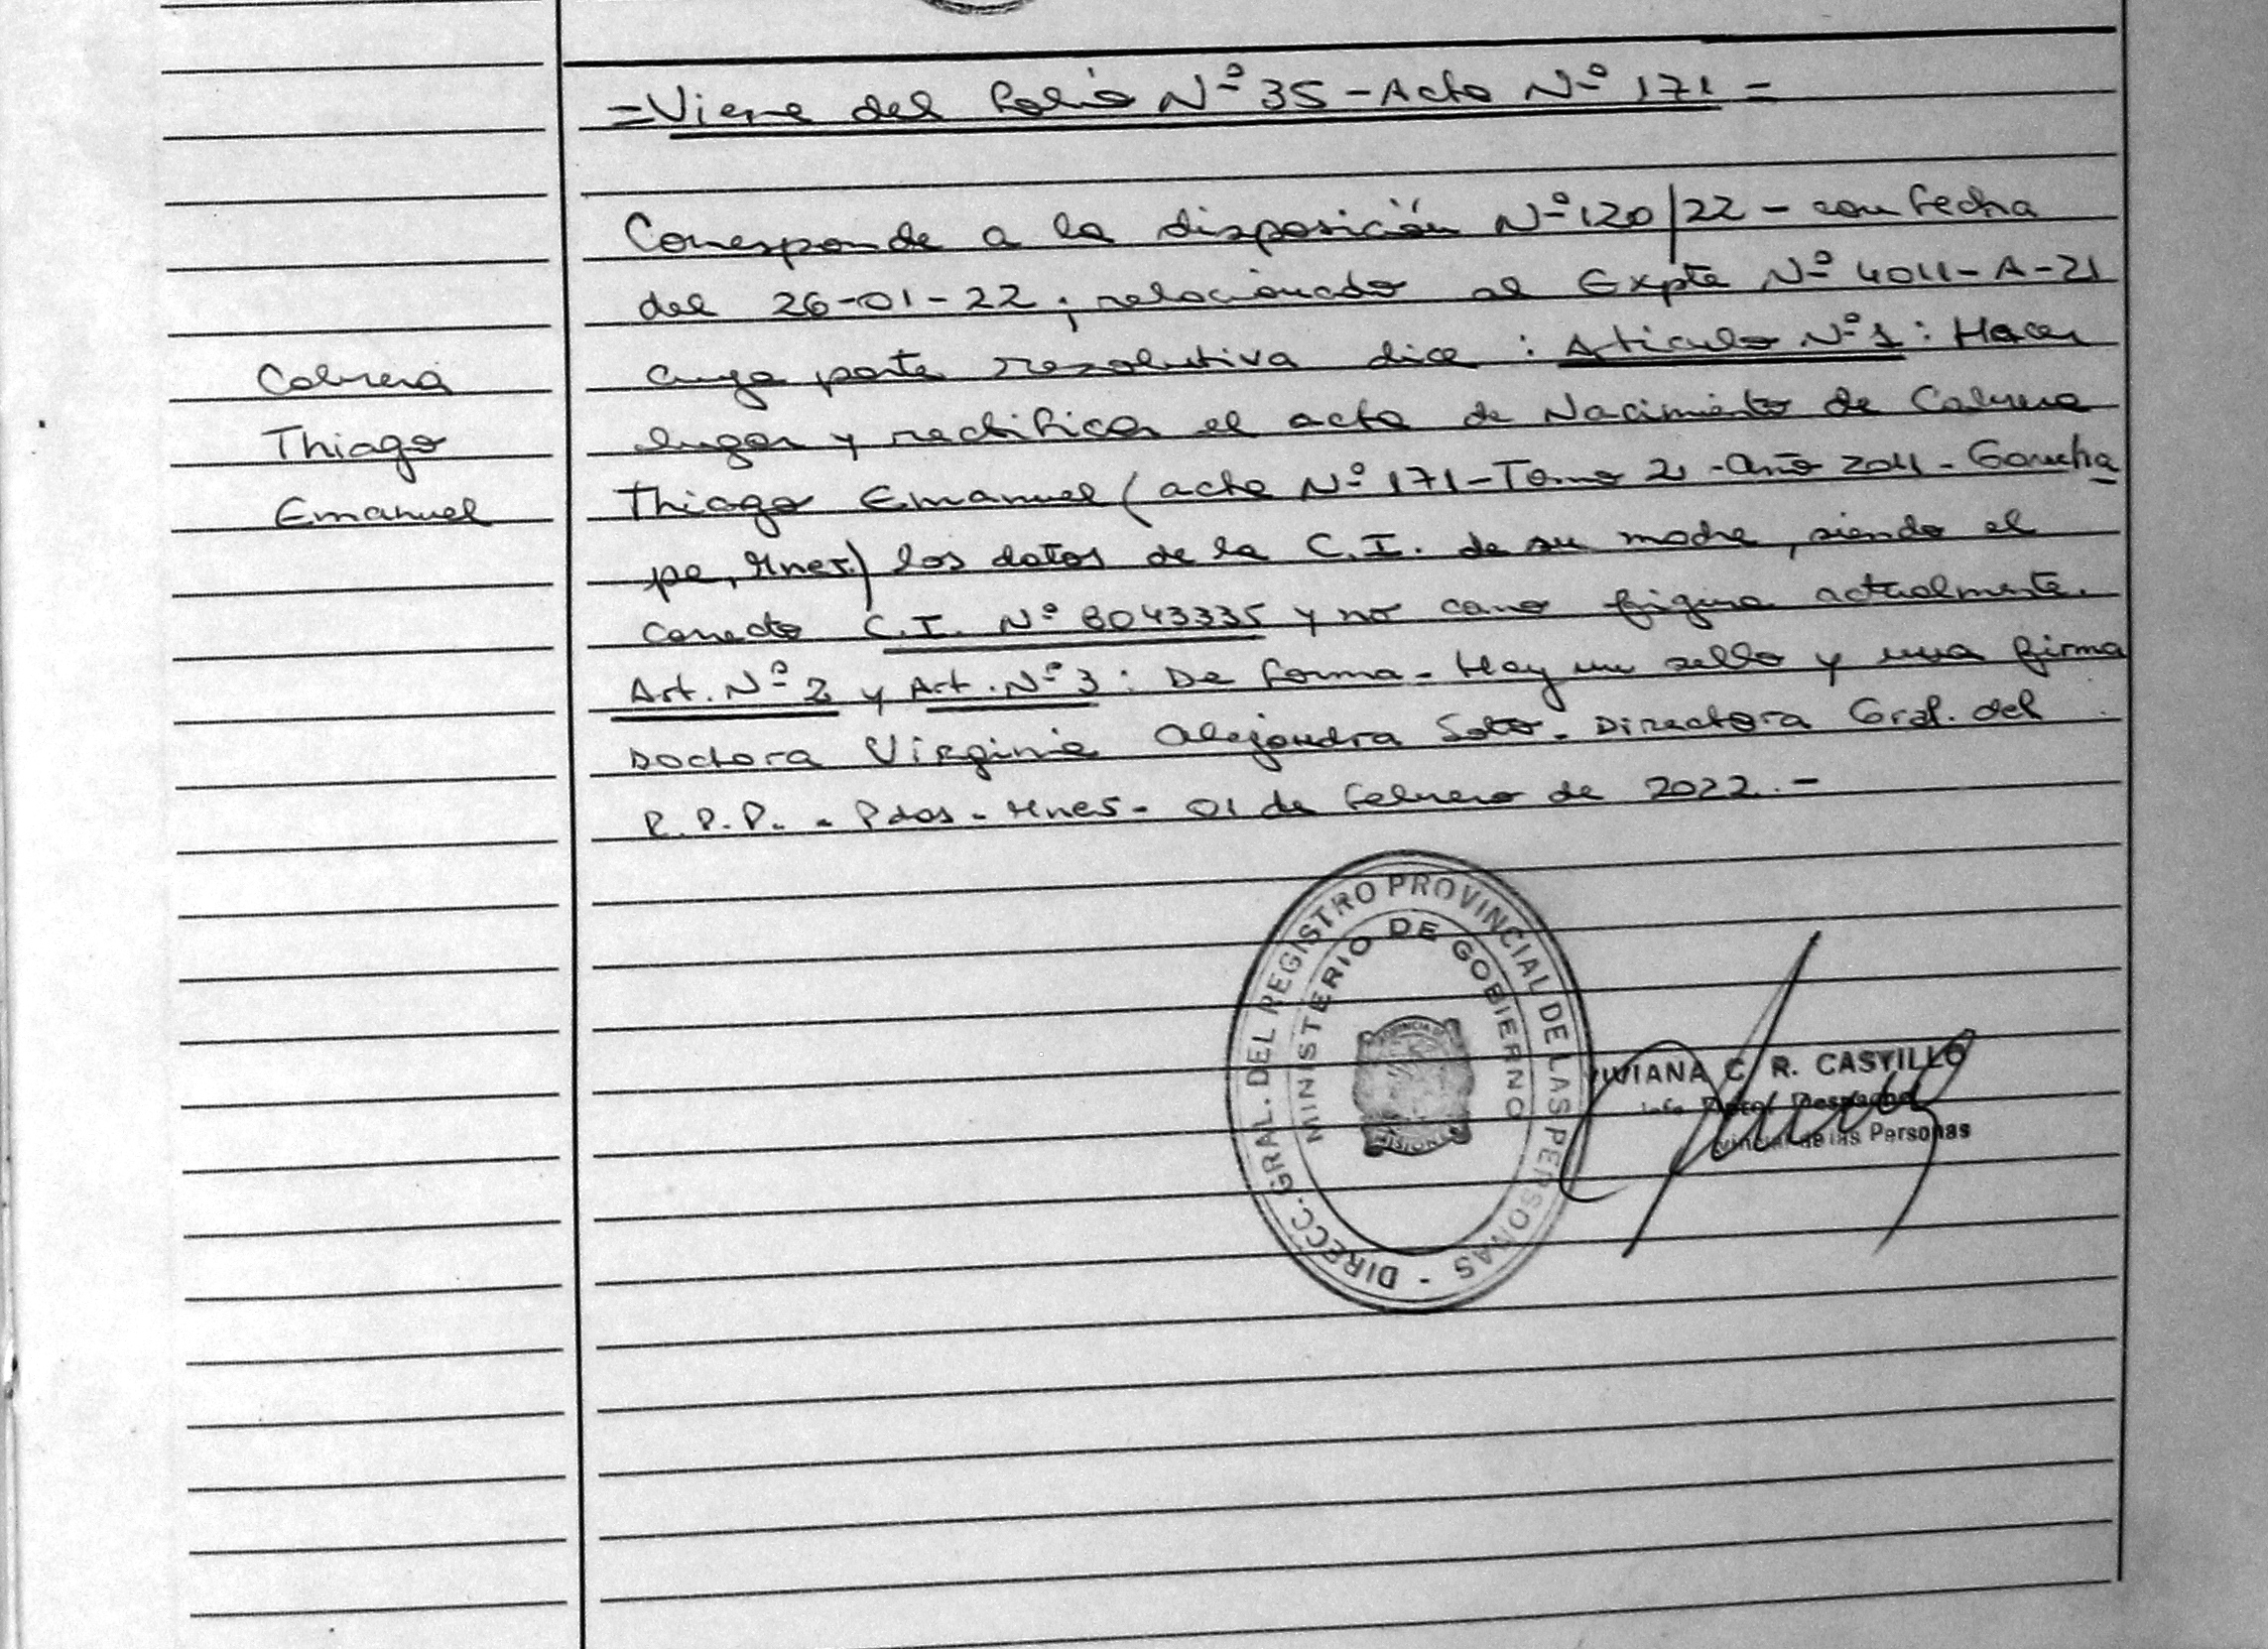 =Viene del folio Nº 35 - Acta Nº 171 =
Corresponde a la disposición Nº 120/22 - con fecha
del 26-01-22, relacionado al Expte Nº 4011-A-21
cuya parte resolutiva dice : Articulo Nº 1 : Hacer
lugar y rectificar el acta de Nacimiento de Cabrera
Thiago Emanuel (acta Nº 171-Tomo 2 -año 2011 - Garucha
pe, Mnes.) los datos de la C.I. de su madre, siendo el
correcto C.I. Nº 8043335 y no como figura actualmente.
Art. Nº 2 y Art. Nº 3 : De forma - Hay un sello y una firma
Doctora Virginia Alejandra Soto. Directora Gral. del
R.P.P. - Pdas - Mnes - 01 de febrero de 2022.-
Cabrera
Thiago
Emanuel
DIRECC. GRAL. DEL REGISTRO PROVINCIAL DE LAS PERSONAS -
MINISTERIO DE GOBIERNO
MISIONES
VIVIANA C. R. CASTILLO
Despacho
de las Personas